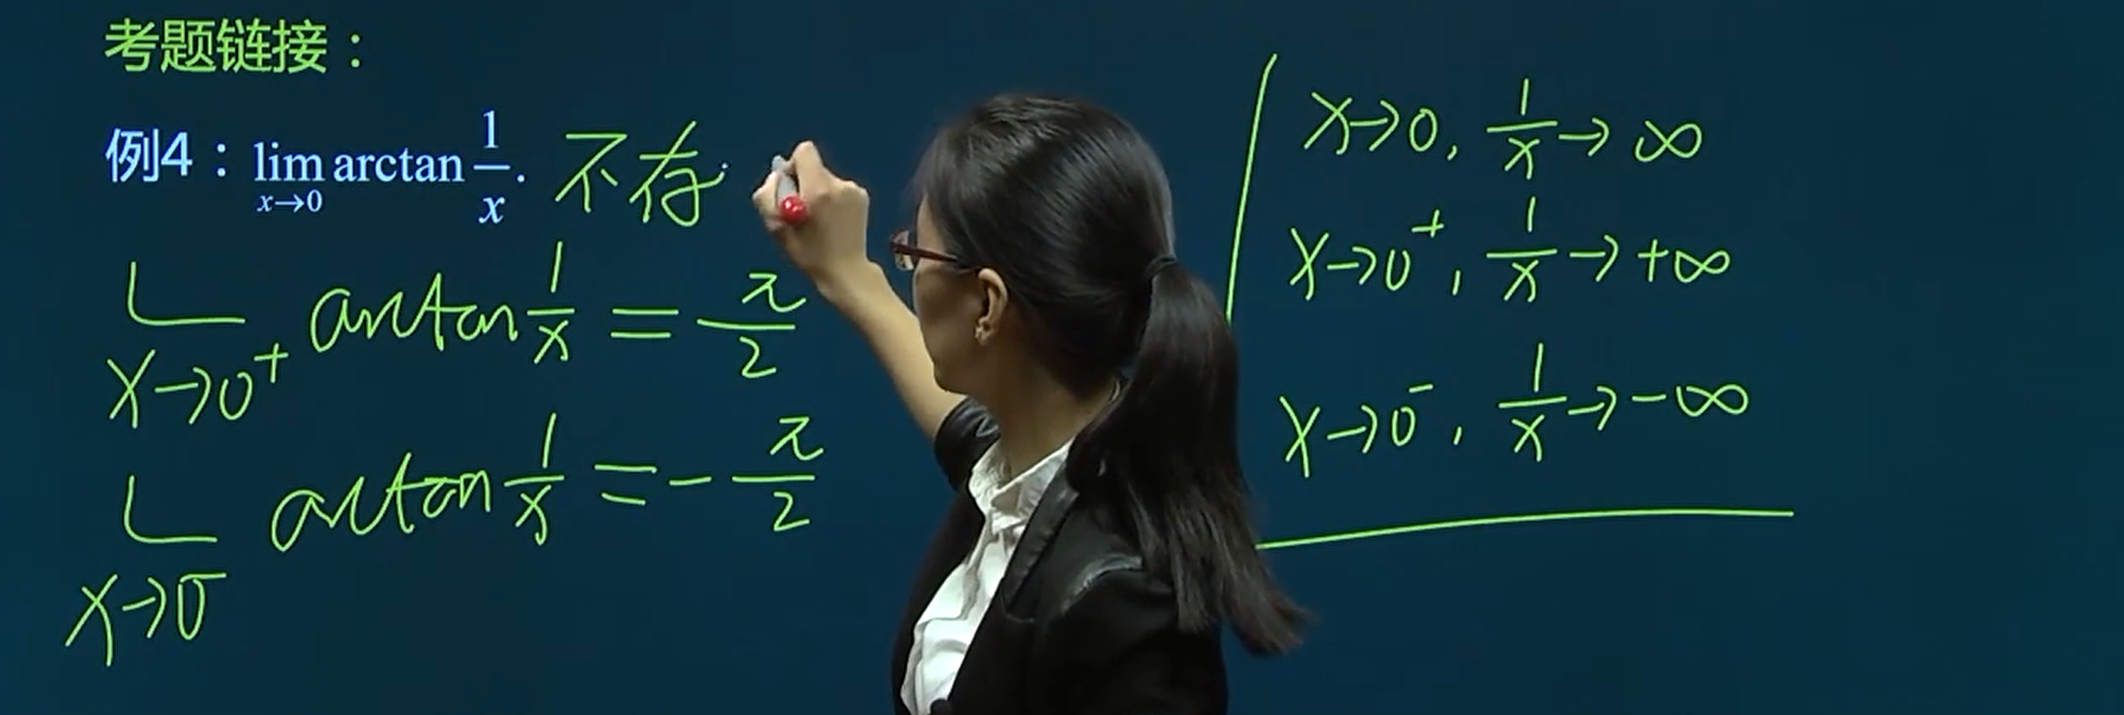 考题链接：
例4：lim x→0 arctan 1/x. 不存
L x→0⁺ arctan 1/x = π/2
L x→0⁻ arctan 1/x = -π/2
x→0, 1/x→∞
x→0⁺, 1/x→+∞
x→0⁻, 1/x→-∞